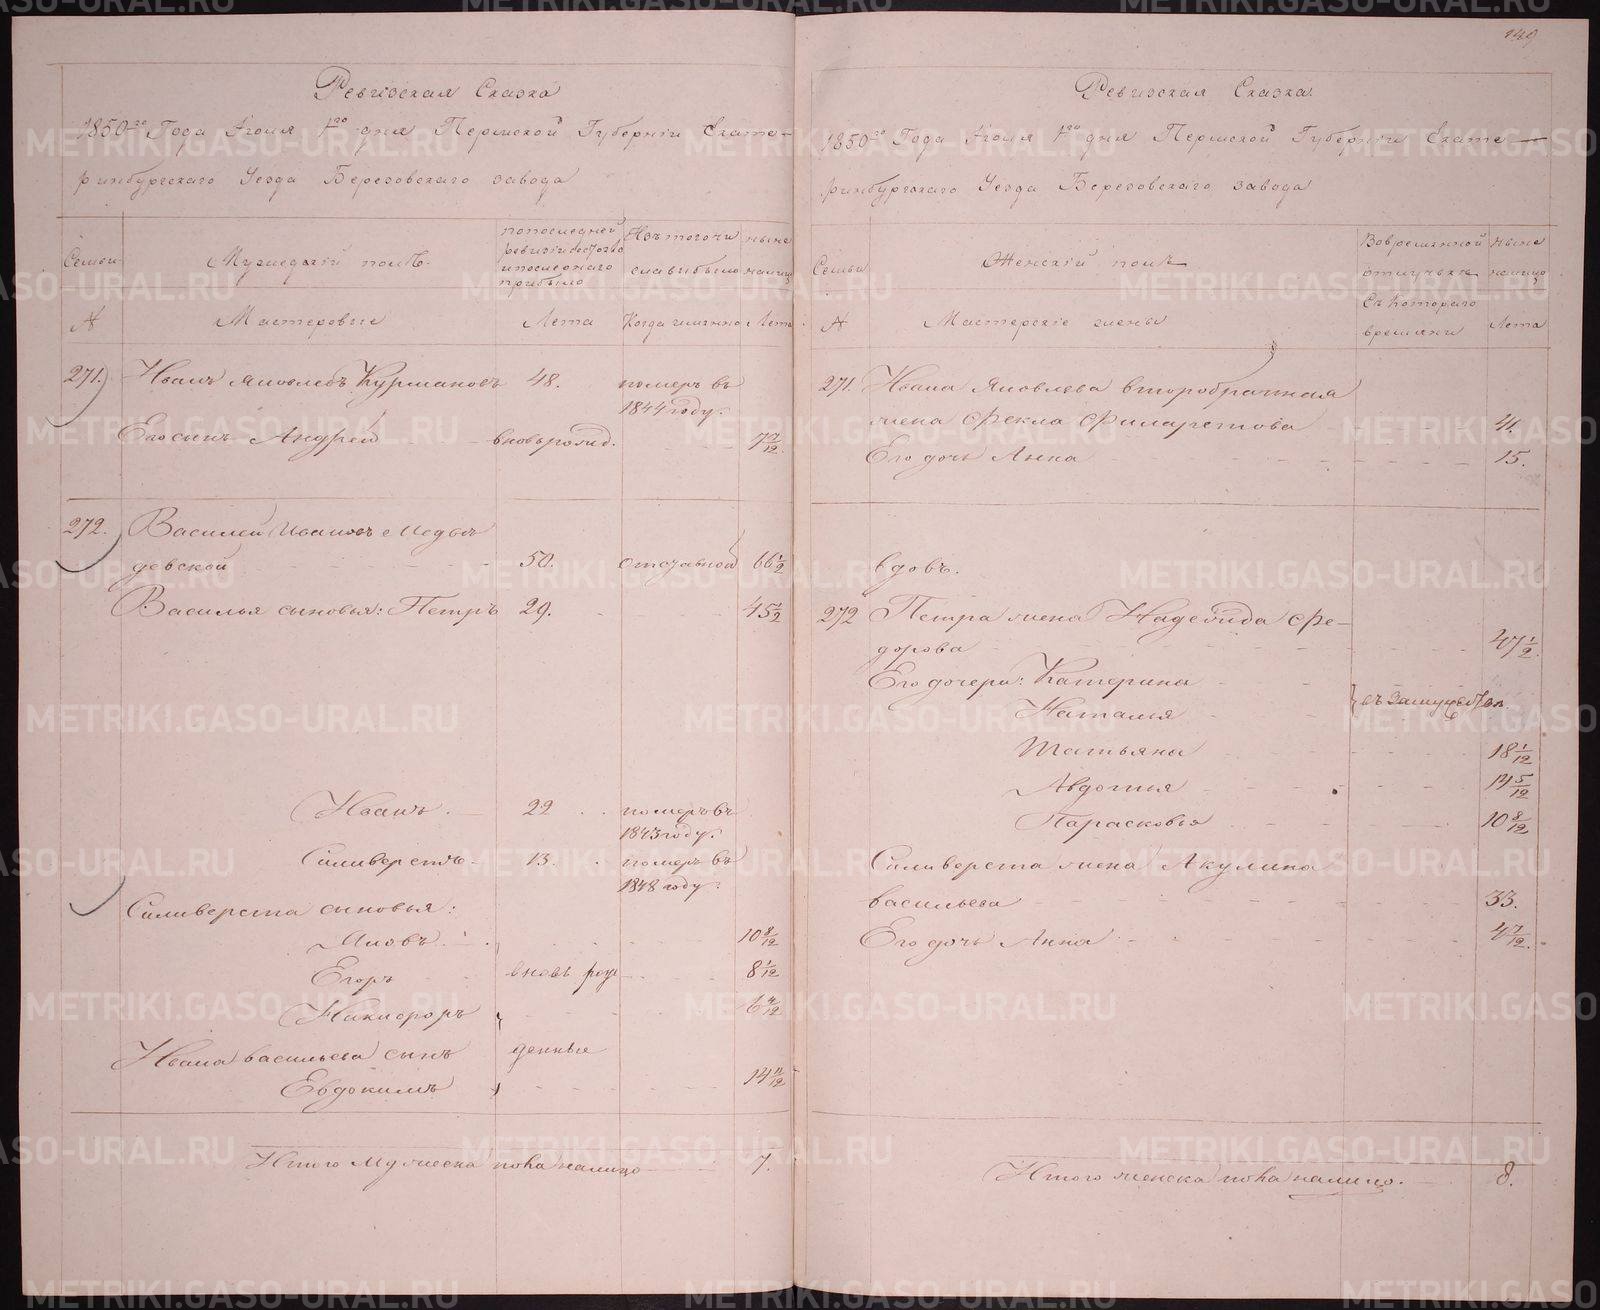 149
Ревизская Сказка
1850го Года Іюля 1го дня Пермской Губерніи Екате-
ринбургскаго Уезда Березовскаго завода
Семьи
Мужеский полъ.
По последней ревизіи состояло и после оного прибыло
Изъ того числа выбыло
ныне налицо
№
Мастеровые
Лета
Когда именно
Лета
271. Иванъ Яковлевъ Курмановъ 48. померъ въ
1844 году.
Его сынъ Андрей вновьрожд. 7 7/12
272. Василей Ивановъ Медве
девской 50. отставной 66 1/2
Василья сыновья: Петръ 29. 45 1/2
Иванъ. 22 померъ въ
1843 году.
Силиверстъ 13. померъ въ
1848 году.
Силиверста сыновья:
Яковъ. 10 8/12
Егоръ вновь рож 8 1/12
Никифоръ 6 4/12
Ивана васильева сынъ денные
Евдокимъ 14 11/12
Итого мужеска пола налицо 7.
Ревизская Сказка
1850го Года Іюля 1го дня Пермской Губерніи Екате-
ринбургскаго Уезда Березовскаго завода
Семьи
Женскій полъ
Во временной отлучьке
ныне налицо
№
Мастерскіе жены
Съ Котораго времяни
Лета
271. Ивана Яковлева второбрачная
жена Фекла Филаретова 41.
Его дочь Анна 15.
вдовъ.
272 Петра жена Надежда Фе-
дорова 47 1/2
Его дочери: Катерина
Наталья
Татьяна 18 1/12
Авдотья 14 5/12
Парасковья 10 8/12
Силиверста жена Акулина
васильева 33.
Его дочь Анна 4 7/12.
Итого женска пола налицо. 8.
METRIKI.GASO-URAL.RU